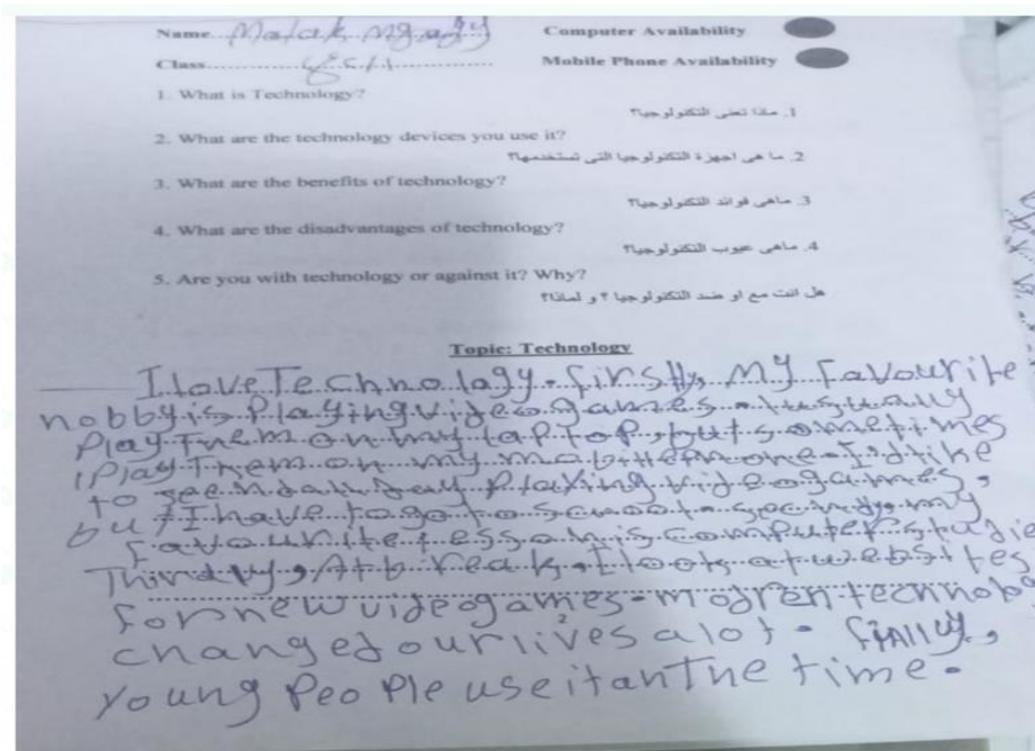 Name...Malak Mgagy Computer Availability
Class.................... Mobile Phone Availability
1. What is Technology?
1. ماذا تعنى التكنولوجيا؟
2. What are the technology devices you use it?
2. ما هى اجهزة التكنولوجيا التى تستخدمها؟
3. What are the benefits of technology?
3. ماهى فوائد التكنولوجيا؟
4. What are the disadvantages of technology?
4. ماهى عيوب التكنولوجيا؟
5. Are you with technology or against it? Why?
هل انت مع او ضد التكنولوجيا ؟ و لماذا؟
Topic: Technology
I love Technology. firstly, my favourite
hobby is playing video games. I usually
Play Them on my laptop, but sometimes
i Play Them on my mobile phone. I'd like
to all day playing video games,
but I have to go to school. secondly, my
favourite lesson is computer studie
Thirdly, At break, I look at websites
for new video games. modren technolo
changed our lives a lot. finally,
young people use it all The time.